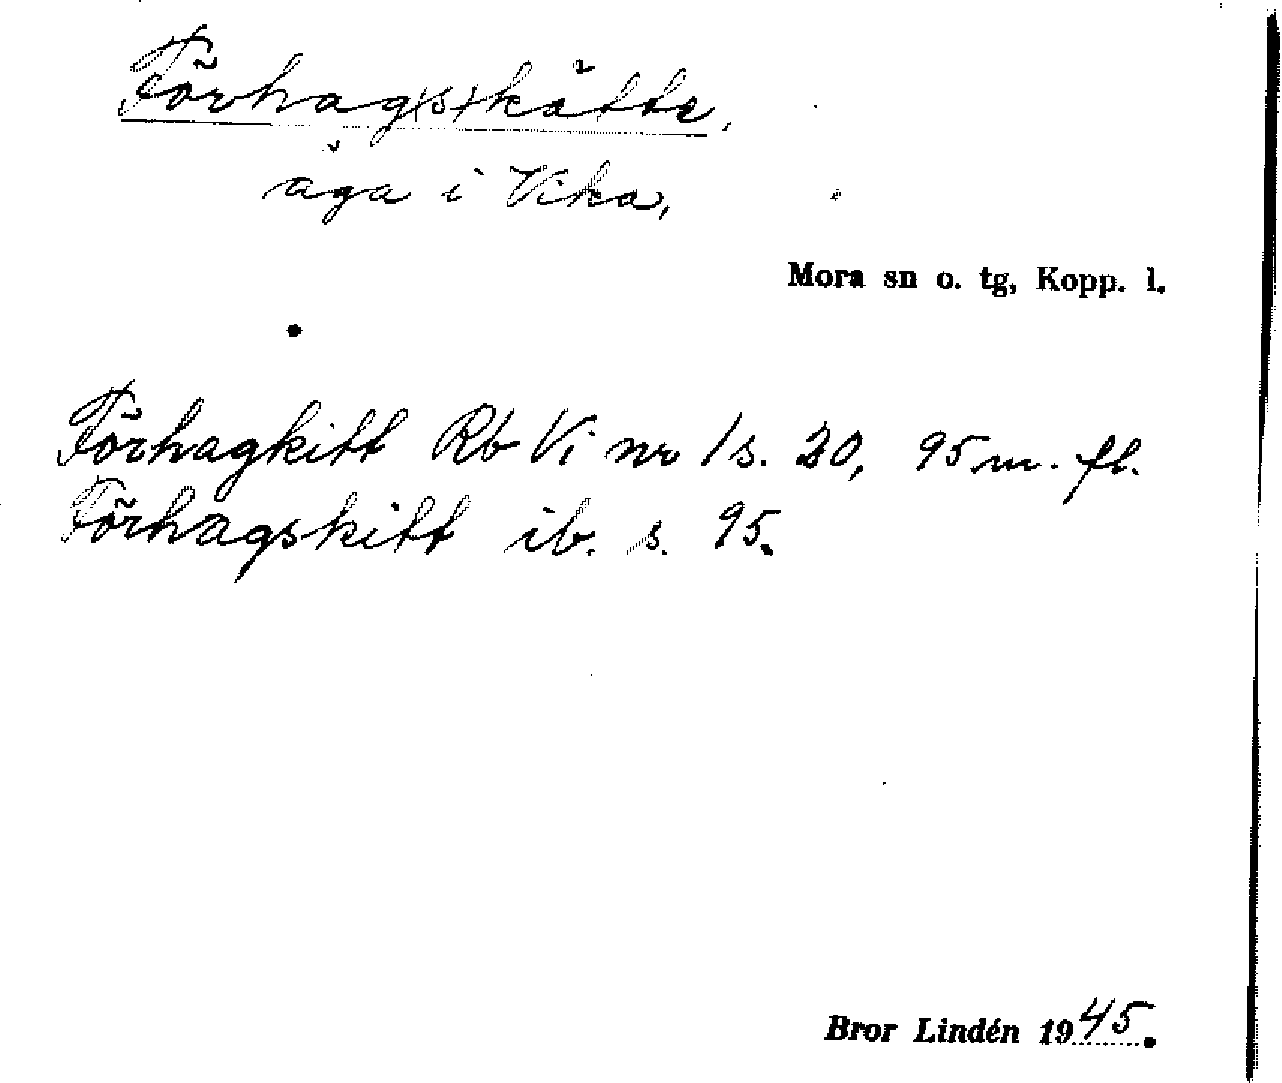 Förhag(s)kätte,
äga i Vika,
Mora sn o. tg, Kopp. l.
Förhagkitt Rb Vi nr 1 s. 20, 95 m. fl.
Förhagskitt ib. s. 95.
Bror Lindén 1945.